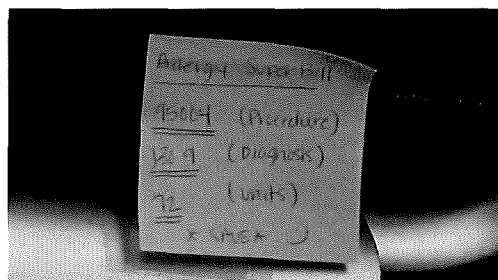 Allergy Super Bill
95004 (Procedure)
J30.9 (Diagnosis)
72 (units)